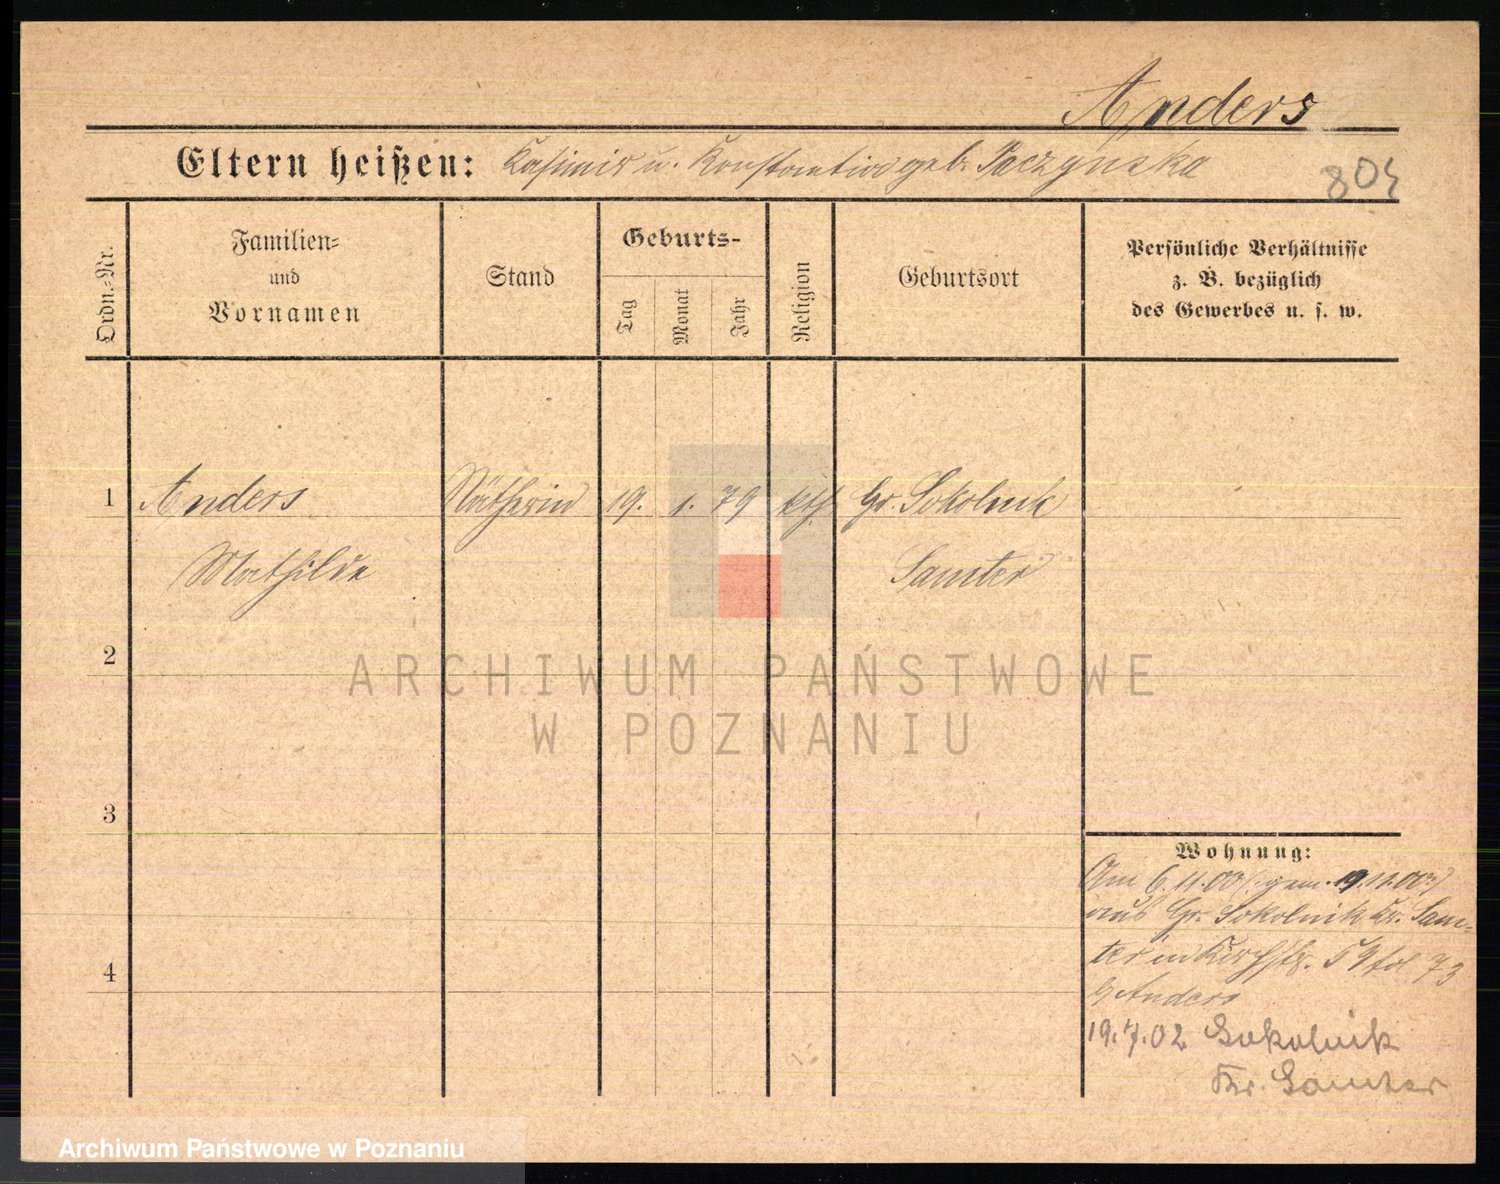 Anders
Eltern heißen: Kasimir u. Konstantia geb. Paczynska
804
Ordn.-Nr.
Familien-
und
Vornamen
Stand
Geburts-
Tag
Monat
Jahr
Religion
Geburtsort
Persönliche Verhältnisse
z. B. bezüglich
des Gewerbes u. s. w.
1 Anders Nätherin 19. 1. 79 kth. Gr. Sokolnik
Mathilde Samter
2
ARCHIWUM PAŃSTWOWE
W POZNANIU
3
Wohnung:
Am 6.11.00 (: gem. 19.11.00 :)
aus Gr. Sokolnik Kr. Sam-
4
ter in 73
b/ Anders
19.7.02 Sokolnik
Kr. Samter
Archiwum Państwowe w Poznaniu